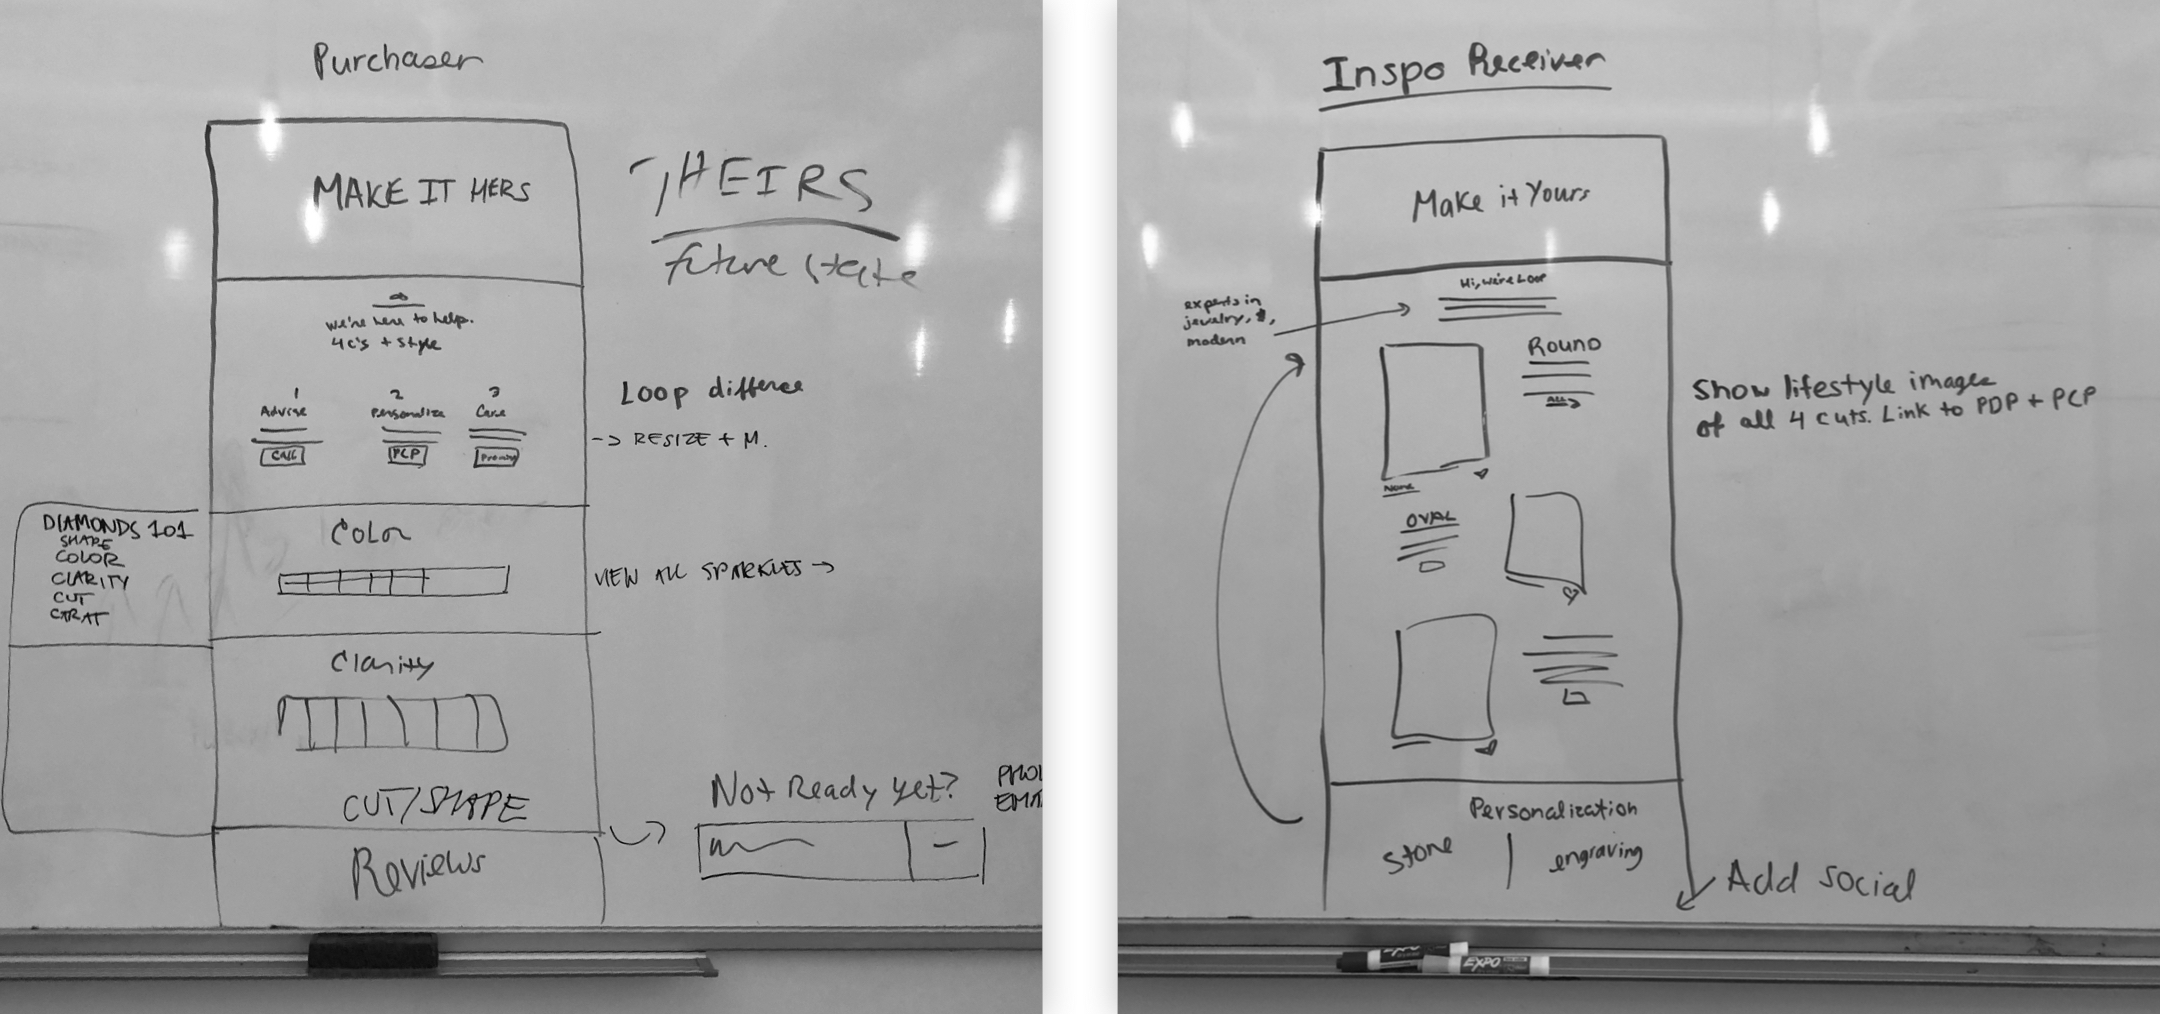 Purchaser
MAKE IT HERS
THEIRS
future state
we're here to help.
4c's + style
1
Advise
CALL
2
Personalize
PCP
3
Care
Loop difference
-> RESIZE + M.
DIAMONDS 101
SHAPE
COLOR
CLARITY
CUT
CARAT
Color
VIEW ALL SPARKLES →
Clarity
CUT/SHAPE
Reviews
Not Ready yet?
Inspo Receiver
Make it Yours
Hi, we're Loop
experts in
jewelry,
modern
ROUND
ALL
Name
OVAL
Show lifestyle images
of all 4 cuts. Link to PDP + PCP
Personalization
Stone | engraving
Add social
EXPO